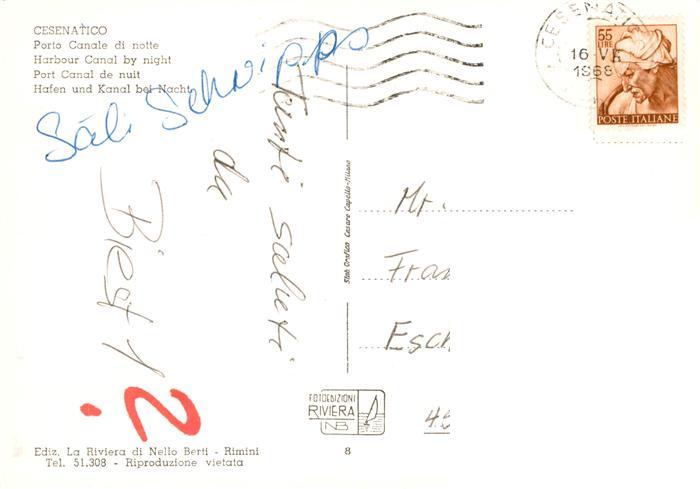 CESENATICO
Porto Canale di notte
Harbour Canal by night
Port Canal de nuit
Hafen und Kanal bei Nacht
CESENATICO
16-VII
1968
55
LIRE
POSTE ITALIANE
Säli Schwipps
Tanti saluti
da
2.
Stab. Grafico Cesare Capello-Milano
Mr.
Fran
Esch
FOTOEDIZIONI
RIVIERA
NB
8
Ediz. La Riviera di Nello Berti - Rimini
Tel. 51.308 - Riproduzione vietata